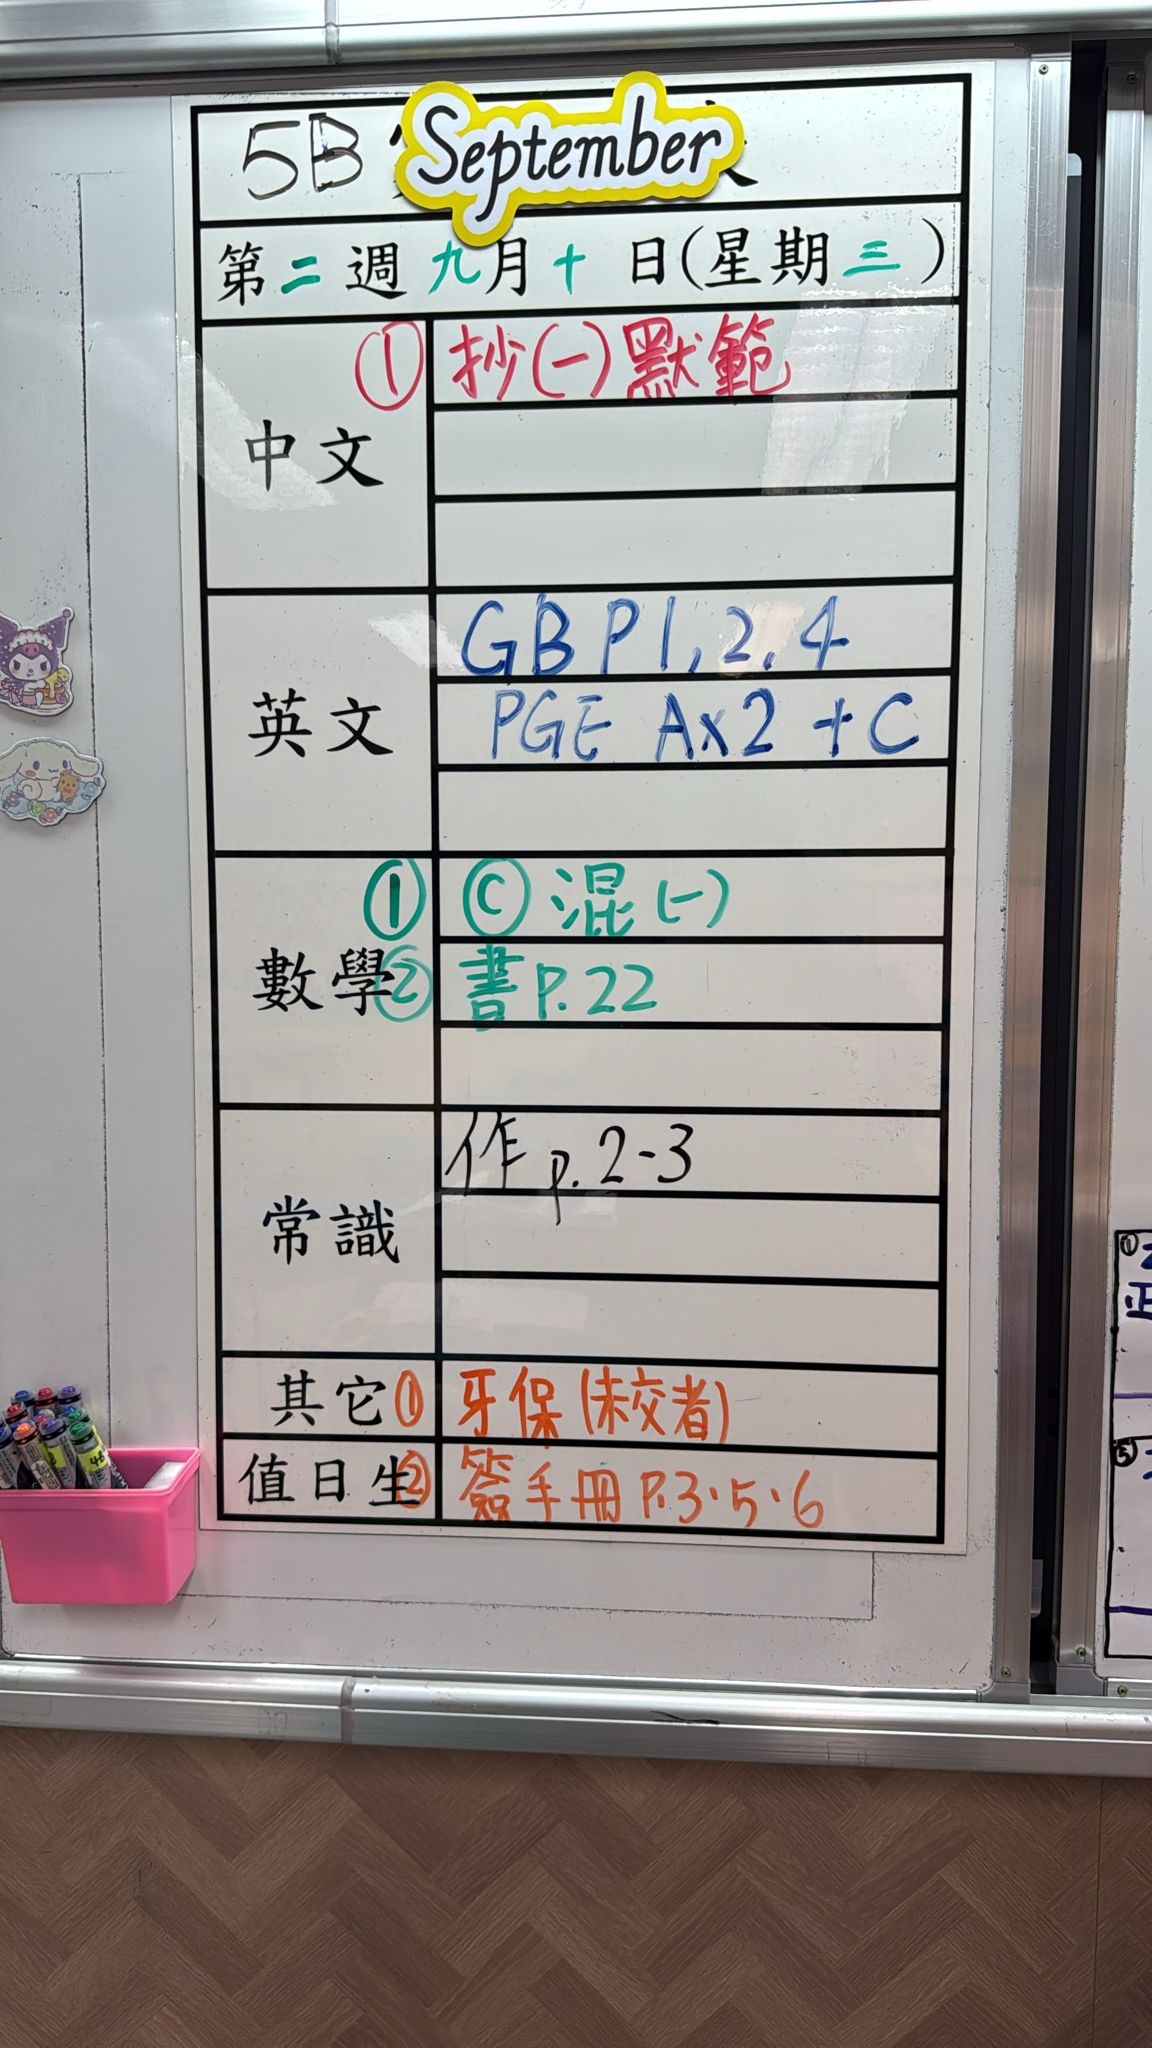 5B September
第二週九月十日(星期三)
中文
① 抄(一)默範
英文
GB P1, 2, 4
PGE Ax2 + C
數學
① Ⓒ 混(一)
② 書 P.22
常識
作 p. 2-3
其它
① 牙保(未交者)
值日生
② 簽手冊 P.3·5·6